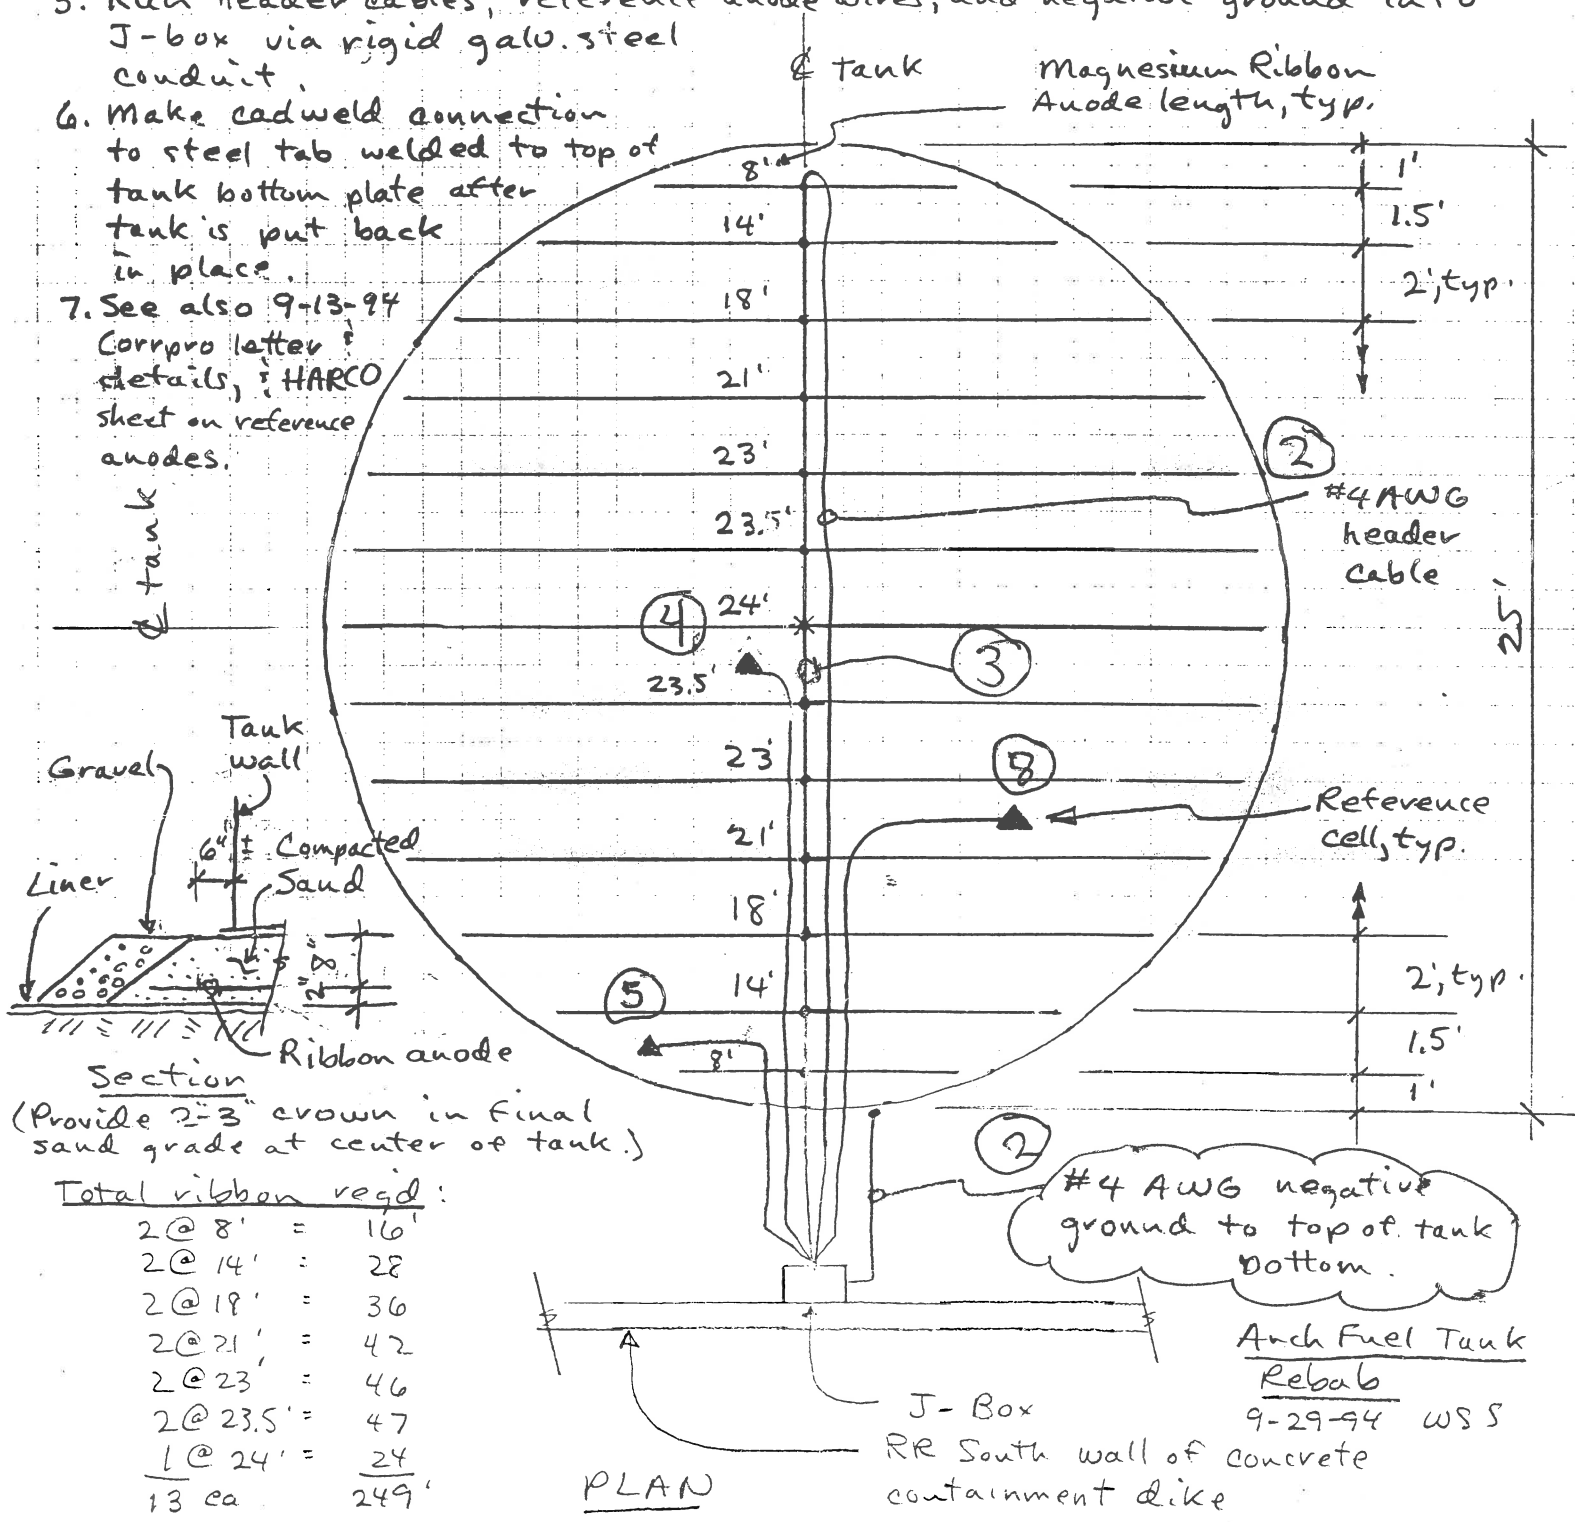 5. Run header cables, reference anode wires, and negative ground into
J-box via rigid galv. steel
conduit.
6. Make cadweld connection
to steel tab welded to top of
tank bottom plate after
tank is put back
in place.
7. See also 9-13-94
Corrpro letter &
details, & HARCO
sheet on reference
anodes.
℄ tank
℄ tank
Magnesium Ribbon
Anode length, typ.
8'
14'
18'
21'
23'
23.5'
24'
23.5'
23'
21'
18'
14'
8'
1'
1.5'
2', typ.
25'
2
#4 AWG
header
cable
4
3
8
Reference
cell, typ.
5
2', typ.
1.5'
1'
Tank
wall
Gravel
6" ±
Compacted
Sand
Liner
8"
2"
Ribbon anode
Section
(Provide 2"-3" crown in final
sand grade at center of tank.)
Total ribbon reqd:
2 @ 8' = 16'
2 @ 14' = 28
2 @ 18' = 36
2 @ 21' = 42
2 @ 23' = 46
2 @ 23.5' = 47
1 @ 24' = 24
13 ea 249'
2
#4 AWG negative
ground to top of tank
bottom.
J-Box
RR South wall of concrete
containment dike
PLAN
Arch Fuel Tank
Rebab
9-29-94 WSS